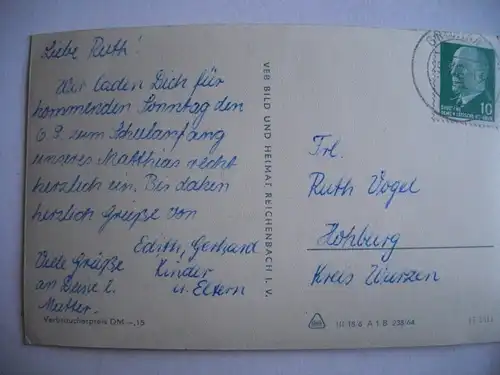 Liebe Ruth!
Wir laden Dich für
kommenden Sonntag den
6.9. zum Schulanfang
unseres Matthias recht
herzlich ein. Bis dahin
herzlich Grüße von
Edith, Gerhard
Kinder
u. Eltern
Viele Grüße
an Deine l.
Mutter.
Verbraucherpreis DM –,15
VEB BILD UND HEIMAT REICHENBACH I. V.
10
Frl.
Ruth Vogel
Hohburg
Kreis Wurzen
III 18 6 A 1 B 238/64